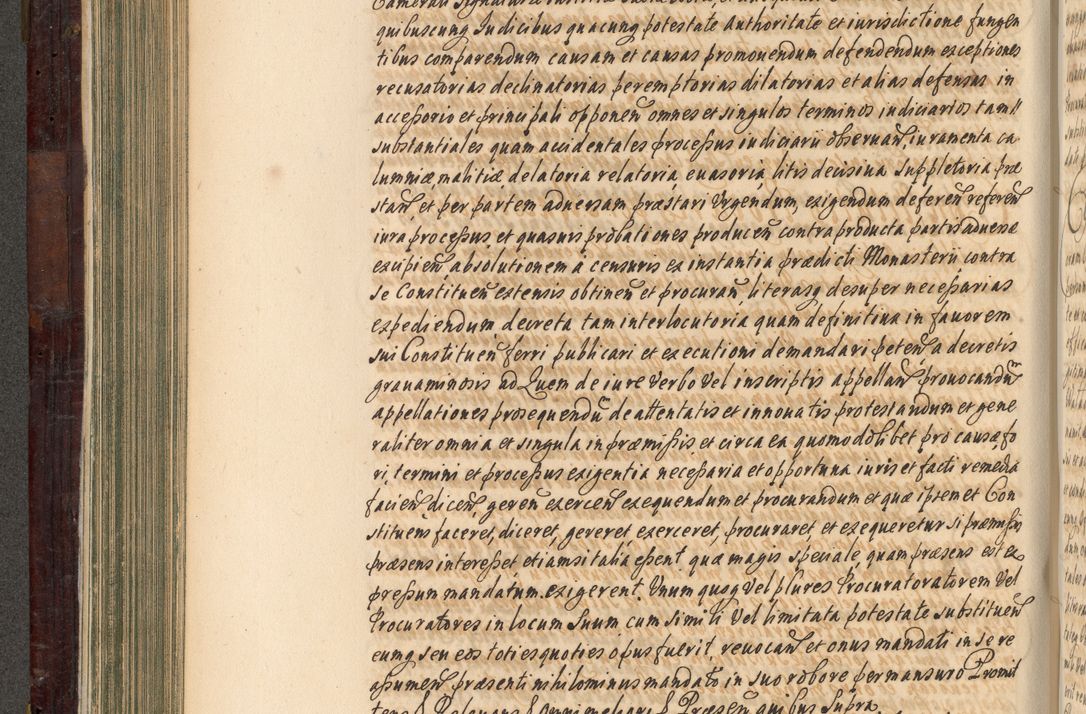 quibuscunq Iudicibus quacunq potestate Authoritate et iurisdictione fungen
tibus comparendum causam et causas promouendum defendendum exceptiones
recusatorias declinatorias peremptorias dilatorias et alias defensas in
acceßorio et principali opponen̄ omnes et singulos terminos iudiciarios tam
substantiales quam accidentales proceßus iudiciarii obseruan̄, iuramenta ca
lumniæ, malitiæ, delatoria relatoria, euasoria, litis decisiua suppletoria præ
stan̄, et per partem aduersam præstari Vrgendum, exigendum deferen̄ referen̄
iura proceßus, et quasuis probationes producen̄ contra producta partis aduersæ
excipien̄ absolutionem à censuris ex instantia prædicti Monasterii contra
se Constituen̄ extensis obtinen̄ et procuran̄, literasq desuper neceßarias
expediendum decreta tam interlocutoria quam definitiua in fauorem
sui Constituen̄ ferri publicari et executioni demandari peten̄ a decretis
grauaminosis ad Quem de iure Verbo Vel in scriptis appellan̄ prouocandū
appellationes prosequendū de attentatis et innouatis protestandum et gene
raliter omnia et singula in præmißis et circa ea quomodolibet pro causæ, fo
ri, termini et proceßus exigentia neceßaria et opportuna iuris et facti remedia
facien̄ dicen̄ geren̄ exercen̄ exequendum et procurandum et quæ ipsemet Con
stituens faceret, diceret, gereret exerceret, procuraret et exequeretur si præmißis
præsens intereßet etiamsi talia eßent quæ magis speciale, quam præsens est ex
preßum mandatum exigerent. Vnum quoq Vel plures Procuratoratorem Vel
Procuratores in locum Suum cum simili Vel limitata potestate substituen̄
eumq seu eos toties quoties opus fuerit, reuocan̄ et onus mandati in se re
aßumen̄, præsenti nihilominus mandato in suo robore permansuro Promit
tens &